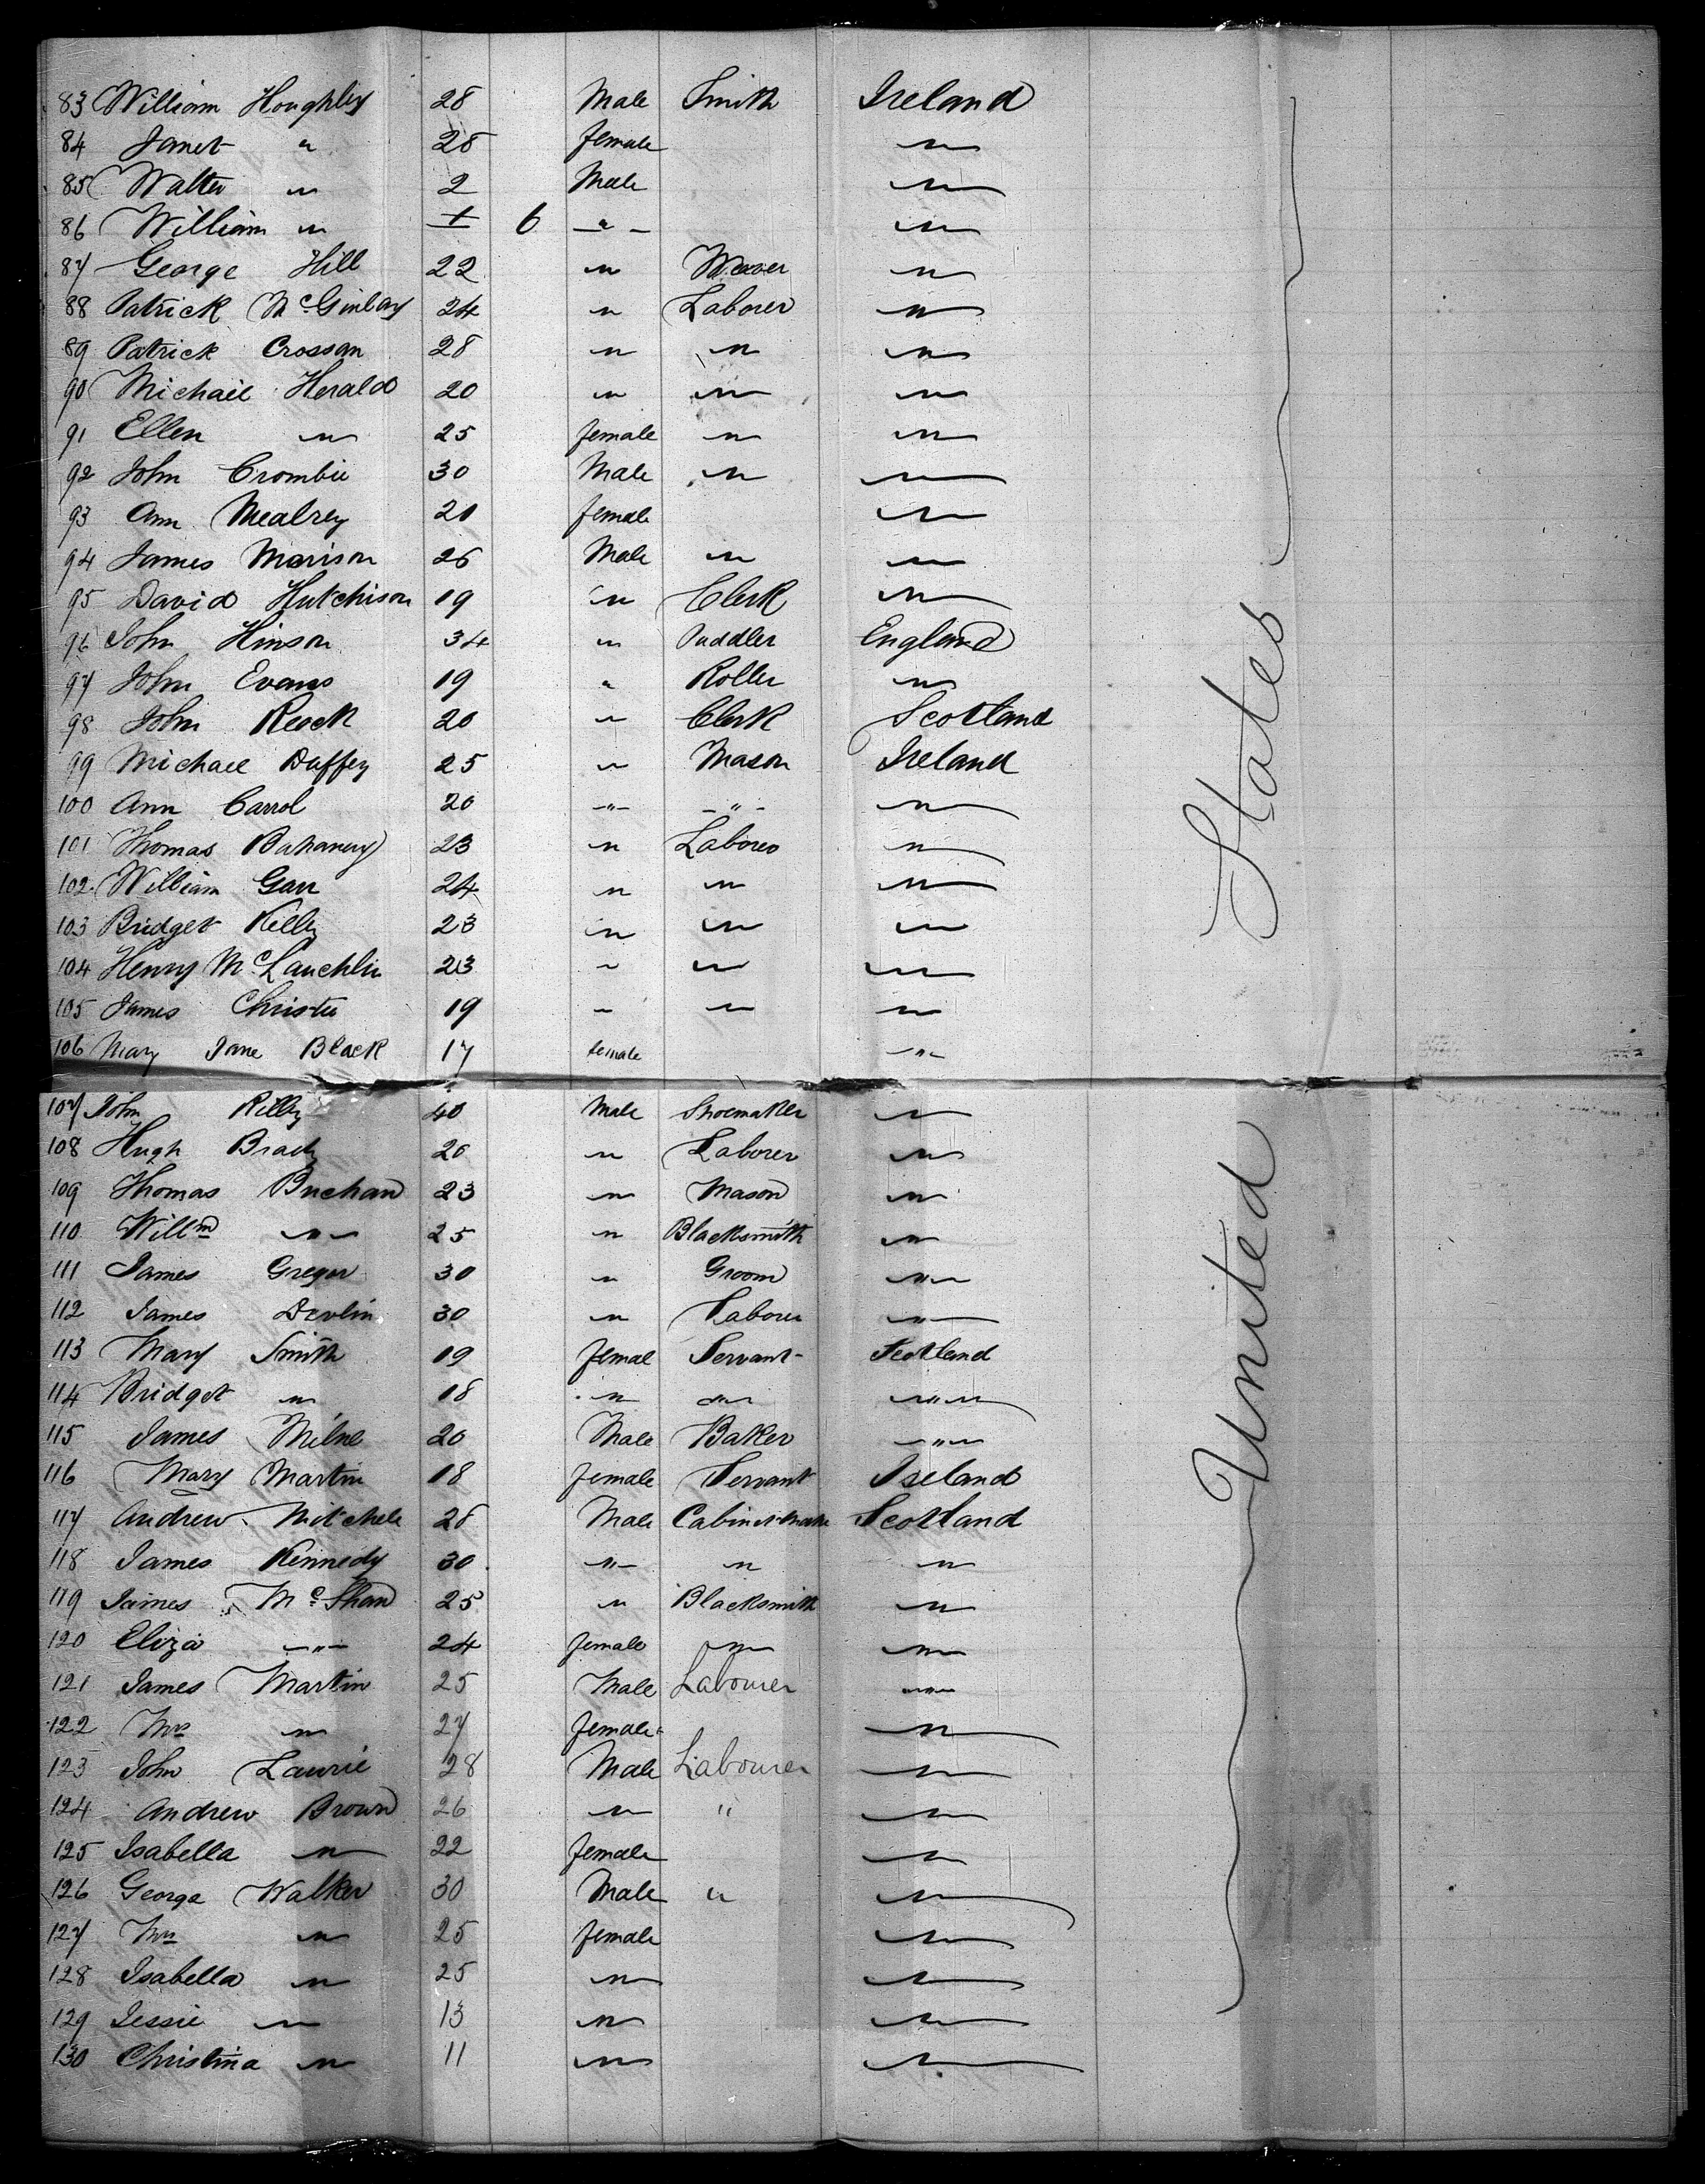 83 William Houghley 28 Male Smith Ireland
84 Janet " 28 female "
85 Walter " 2 Male "
86 William " 6 " "
87 George Hill 22 " Weaver "
88 Patrick McGinlay 24 " Laborer "
89 Patrick Crossan 28 " " "
90 Michail Herald 20 " " "
91 Ellen " 25 female " "
92 John Crombie 30 Male " "
93 Ann Mealrey 20 female "
94 James Morison 26 Male " "
95 David Hutchison 19 " Clerk "
96 John Hinson 34 " Puddler England
97 John Evans 19 " Roller "
98 John Reock 20 " Clerk Scotland
99 Michael Duffey 25 " Mason Ireland
100 Ann Carrol 20 " " "
101 Thomas 23 " Laborer "
102 William Garr 24 " " "
103 Bridget Kelly 23 " " "
104 Henry McLauchlin 23 " " "
105 James Christie 19 " " "
106 Mary Jane Black 17 female "
107 John Rilley 40 Male Shoemaker "
108 Hugh Brady 20 " Laborer "
109 Thomas Buchan 23 " Mason "
110 Willm " 25 " Blacksmith "
111 James Gregor 30 " Groom "
112 James Devlin 30 " Laborer "
113 Mary Smith 19 femal Servant Scotland
114 Bridget " 18 " " "
115 James Milne 20 Male Baker "
116 Mary Martin 18 female Servant Ireland
117 Andrew Mitchele 28 Male Cabinetmaker Scotland
118 James Kennedy 30 " " "
119 James McShan 25 " Blacksmith "
120 Eliza " 24 female " "
121 James Martin 25 Male Labourer "
122 Mrs " 27 female "
123 John Lawrie 28 Male Labourer "
124 Andrew Brown 26 " " "
125 Isabella " 22 female "
126 George Walker 30 Male " "
127 Mrs " 25 female "
128 Isabella " 25 " "
129 Jessie " 13 " "
130 Christina " 11 " "
United States